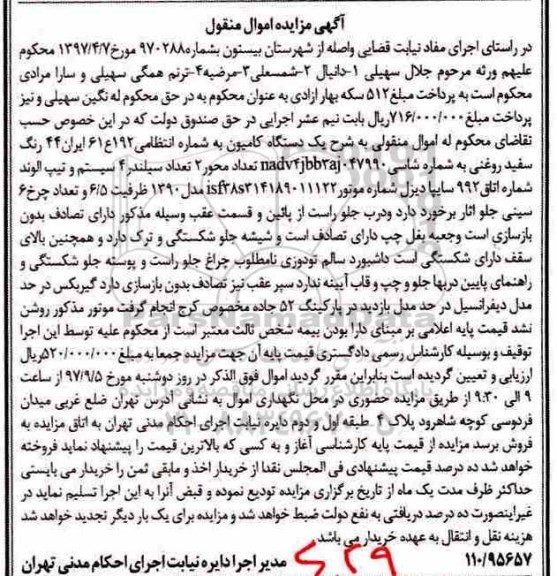 آگهی مزایده اموال منقول
در راستای اجرای مفاد نیابت قضایی واصله از شهرستان بیستون بشماره۹۷۰۲۸۸ مورخ۱۳۹۷/۴/۷ محکوم
علیهم ورثه مرحوم جلال سهیلی ۱-دانیال ۲-شمسعلی۳-مرضیه۴-ترنم همگی سهیلی و سارا مرادی
محکوم است به پرداخت مبلغ۵۱۲ سکه بهار ازادی به عنوان محکوم به در حق محکوم له نگین سهیلی و نیز
پرداخت مبلغ۷۱۶/۰۰۰/۰۰۰ریال بابت نیم عشر اجرایی در حق صندوق دولت که در این خصوص حسب
تقاضای محکوم له اموال منقولی به شرح یک دستگاه کامیون به شماره انتظامی۱۹۲ع۶۱ ایران۴۴ رنگ
سفید روغنی به شماره شاسی nadv۴jbb۲aj۰۴۷۹۹۰ تعداد محور۲ تعداد سیلندر۴ سیستم و تیپ الوند
شماره اتاق۹۹۲ سایپا دیزل شماره موتور isf۳۸s۳۱۴۱۸۹۰۱۱۱۲۲ مدل۱۳۹۰ ظرفیت ۶/۵ و تعداد چرخ۶
سینی جلو اثار برخورد دارد ودرب جلو راست از پائین و قسمت عقب وسیله مذکور دارای تصادف بدون
بازسازی است وجعبه بغل چپ دارای تصادف است و شیشه جلو شکستگی و ترک دارد و همچنین بالای
سقف دارای شکستگی است داشبورد سالم تودوزی نامطلوب چراغ جلو راست و پوسته جلو شکستگی و
راهنمای پایین دربها جلو و چپ و قاب آیینه ندارد سپر عقب نیز تصادف بدون بازسازی دارد گیربکس در حد
مدل دیفرانسیل در حد مدل بازدید در پارکینگ ۵۲ جاده مخصوص کرج انجام گرفت موتور مذکور روشن
نشد قیمت پایه اعلامی بر مبنای دارا بودن بیمه شخص ثالث معتبر است از محکوم علیه توسط این اجرا
توقیف و بوسیله کارشناس رسمی دادگستری قیمت پایه آن جهت مزایده جمعا به مبلغ ۵۲۰/۰۰۰/۰۰۰ریال
ارزیابی و تعیین گردیده است بنابراین مقرر گردید اموال فوق الذکر در روز دوشنبه مورخ ۹۷/۹/۵ از ساعت
۹ الی ۹:۳۰ از طریق مزایده حضوری در محل نگهداری اموال به نشانی ادرس تهران ضلع غربی میدان
فردوسی کوچه شاهرود پلاک۹ طبقه اول و دوم دایره نیابت اجرای احکام مدنی تهران به اتاق مزایده به
فروش برسد مزایده از قیمت پایه کارشناسی آغاز و به کسی که بالاترین قیمت را پیشنهاد نماید فروخته
خواهد شد ده درصد قیمت پیشنهادی فی المجلس نقدا از خریدار اخذ و مابقی ثمن را خریدار می بایستی
حداکثر ظرف مدت یک ماه از تاریخ برگزاری مزایده تودیع نموده و قبض آنرا به این اجرا تسلیم نماید در
غیراینصورت ده درصد دریافتی به نفع دولت ضبط خواهد شد و مزایده برای یک بار دیگر تجدید خواهد شد
هزینه نقل و انتقال به عهده خریدار می باشد.
۱۱۰/۹۵۶۵۷ مدیر اجرا دایره نیابت اجرای احکام مدنی تهران